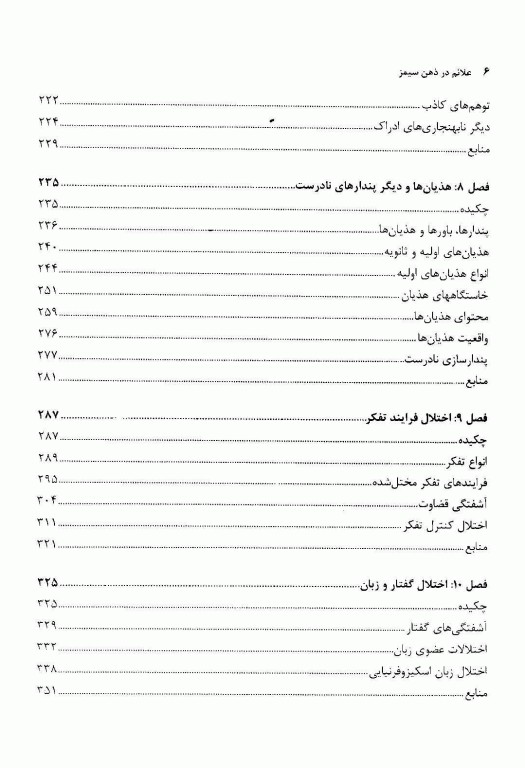 ۶ علائم در ذهن سیمز
توهم‌های کاذب ۲۲۲
دیگر نابهنجاری‌های ادراک ۲۲۴
منابع ۲۲۹
فصل ۸: هذیان‌ها و دیگر پندارهای نادرست ۲۳۵
چکیده ۲۳۵
پندارها، باورها و هذیان‌ها ۲۳۶
هذیان‌های اولیه و ثانویه ۲۴۰
انواع هذیان‌های اولیه ۲۴۴
خاستگاههای هذیان ۲۵۱
محتوای هذیان‌ها ۲۵۹
واقعیت هذیان‌ها ۲۷۶
پندارسازی نادرست ۲۷۷
منابع ۲۸۱
فصل ۹: اختلال فرایند تفکر ۲۸۷
چکیده ۲۸۷
انواع تفکر ۲۸۹
فرایندهای تفکر مختل‌شده ۲۹۵
آشفتگی قضاوت ۳۰۴
اختلال کنترل تفکر ۳۱۱
منابع ۳۲۱
فصل ۱۰: اختلال گفتار و زبان ۳۲۵
چکیده ۳۲۵
آشفتگی‌های گفتار ۳۲۹
اختلالات عضوی زبان ۳۳۲
اختلال زبان اسکیزوفرنیایی ۳۳۸
منابع ۳۵۱